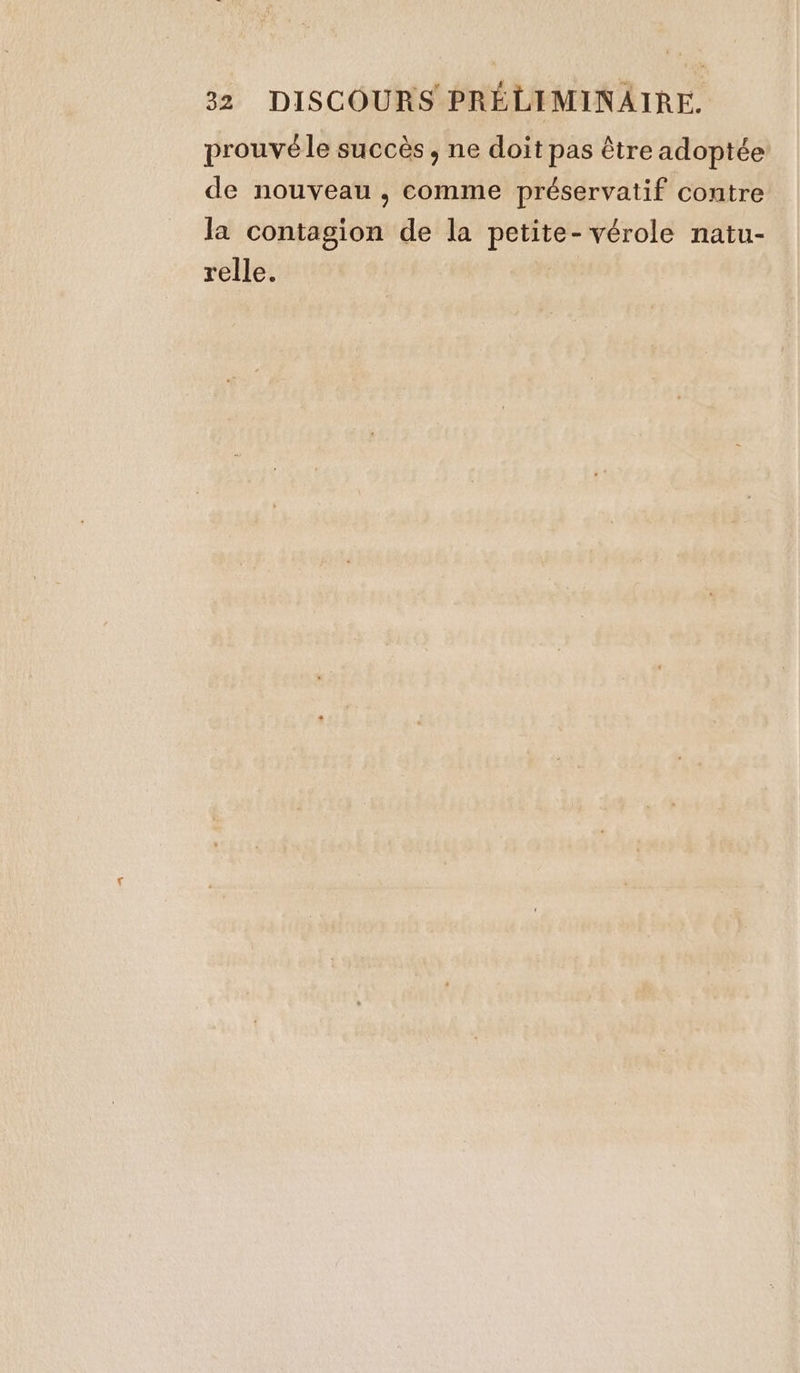 32 DISCOURS PRÉLIMINAIRE.
prouvé le succès, ne doit pas être adoptée
de nouveau, comme préservatif contre
la contagion de la petite-vérole natu-
relle.